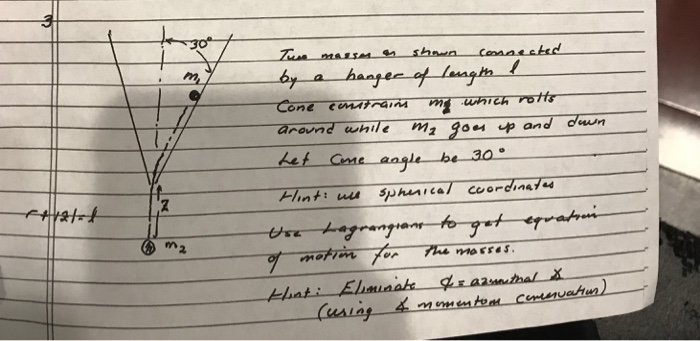 3
30°
m₁
Two masses as shown connected
by a hanger of length l
Cone constrains m₁ which rolls
around while m₂ goes up and down
Let Cone angle be 30°
Hint: use spherical coordinates
z
r+|z|=l
Use Lagrangians to get equation
m₂
of motion for the masses.
Hint: Eliminate φ = azimuthal ∡
(using ∡ momentum conservation)